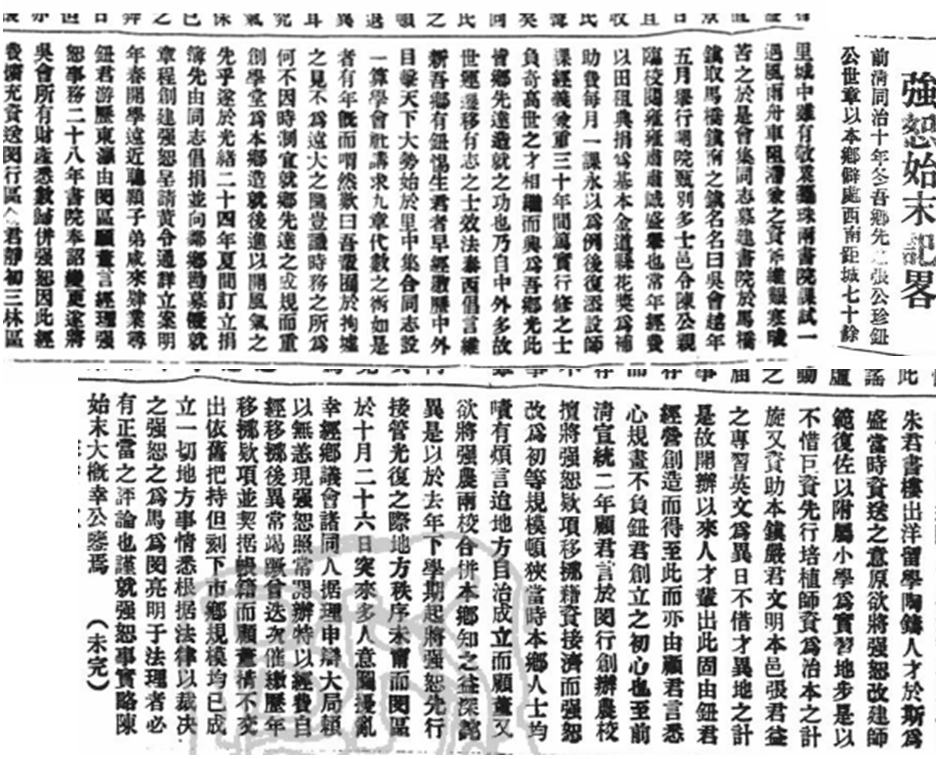 強恕始末記畧
前清同治十年冬吾鄉先之張公珍鈕
公世章以本鄉僻處西南距城七十餘
里城中雖有敬業蕊珠兩書院課試一
遇風雨舟車阻滯兼之資斧維艱寒畯
苦之於是會集同志募建書院於馬橋
鎮取馬橋鎮南之鎮名名曰吳會越年
五月舉行開院甄別多士邑令陳公親
臨校閱雍雍肅肅誠盛舉也常年經費
以田租典捐爲基本金道縣花獎爲補
助費每月一課永以爲例後復添設師
課經義兼重三十年間篤實行修之士
負奇高世之才相繼而興爲吾鄉光此
皆鄉先達造就之功也乃自中外多故
世運遷移有志之士效法泰西倡言維
新吾鄉有鈕惕生君者早經遊歷中外
目擊天下大勢始於里中集合同志設
一算學會社講求九章代數之術如是
者有年旣而喟然歎曰吾輩囿於拘墟
之見不爲遠大之圖豈識時務之所爲
何不因時制宜就鄉先達之成規而重
創學堂爲本鄉造就後進以開風氣之
先乎遂於光緒二十四年夏間訂立捐
簿先由同志倡捐並向鄰鄉勸募儗就
章程創建强恕呈請黃令通詳立案明
年春開學遠近聽穎子弟咸來肄業尋
鈕君游歷東瀛由閔區顧董言經理强
恕事務二十八年書院奉詔變更遂將
吳會所有財產悉數歸併强恕因此經
費濟充資送閔行區人君靜初三林區
朱君書樓出洋留學陶鑄人才於斯爲
盛當時資送之意原欲將强恕改建師
範復佐以附屬小學爲實習地步是以
不惜巨資先行培植師資爲治本之計
旋又資助本鎮嚴君文明本邑張君益
之專習英文爲異日不借才異地之計
是故開辦以來人才輩出此固由鈕君
經營創造而得至此而亦由顧君言悉
心規畫不負鈕君創立之初心也至前
淸宣統二年顧君言於閔行創辦農校
擅將强恕欵項移挪藉資接濟而强恕
改爲初等規模頓狹當時本鄉人士均
嘖有煩言迨地方自治成立而顧董又
欲將强農兩校合拼本鄉知之益深詫
異是以於去年下學期起將强恕先行
接管光復之際地方秩序未甯而閔區
於十月二十六日突來多人意圖擾亂
幸經鄉議會諸同人据理申辯大局賴
以無恙現强恕照常開辦特以經費自
經移挪後異常竭蹶曾迭次催繳歷年
移挪欵項並契据帳籍而顧董情不交
出依舊把持但刻下市鄉規模均已成
立一切地方事情悉根据法律以裁决
之强恕之爲馬爲閔亮明于法理者必
有正當之評論也謹就强恕事實略陳
始末大槪幸公鑒焉　（未完）